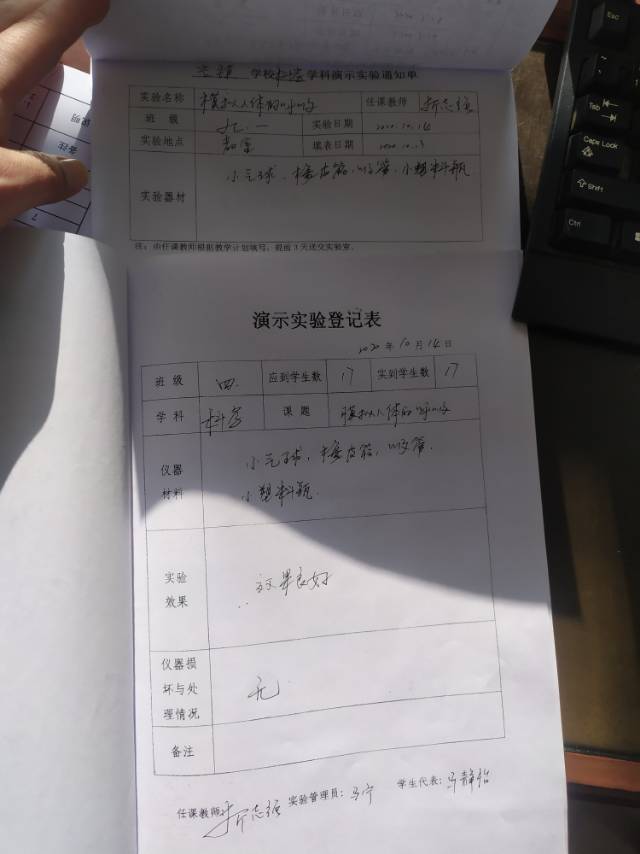 学校科学学科演示实验通知单
实验名称 模拟人体的呼吸 任课教师 折志强
班 级 实验日期 2020.10.14
实验地点 教室 填表日期 2020.10.9
实验器材 小气球、橡皮筋、吸管、小塑料瓶
注：由任课教师根据教学计划填写，提前3天送交实验室.
演示实验登记表
2020年10月14日
班 级 四. 应到学生数 17 实到学生数 17
学 科 科学 课 题 模拟人体的呼吸
仪器
材料
小气球，橡皮筋，吸管.
小塑料瓶.
实验
效果
效果良好
仪器损
坏与处
理情况
无
备注
任课教师： 折志强 实验管理员：马宁 学生代表：马静怡
Esc
Tab
Caps Lock
Shift
Ctrl